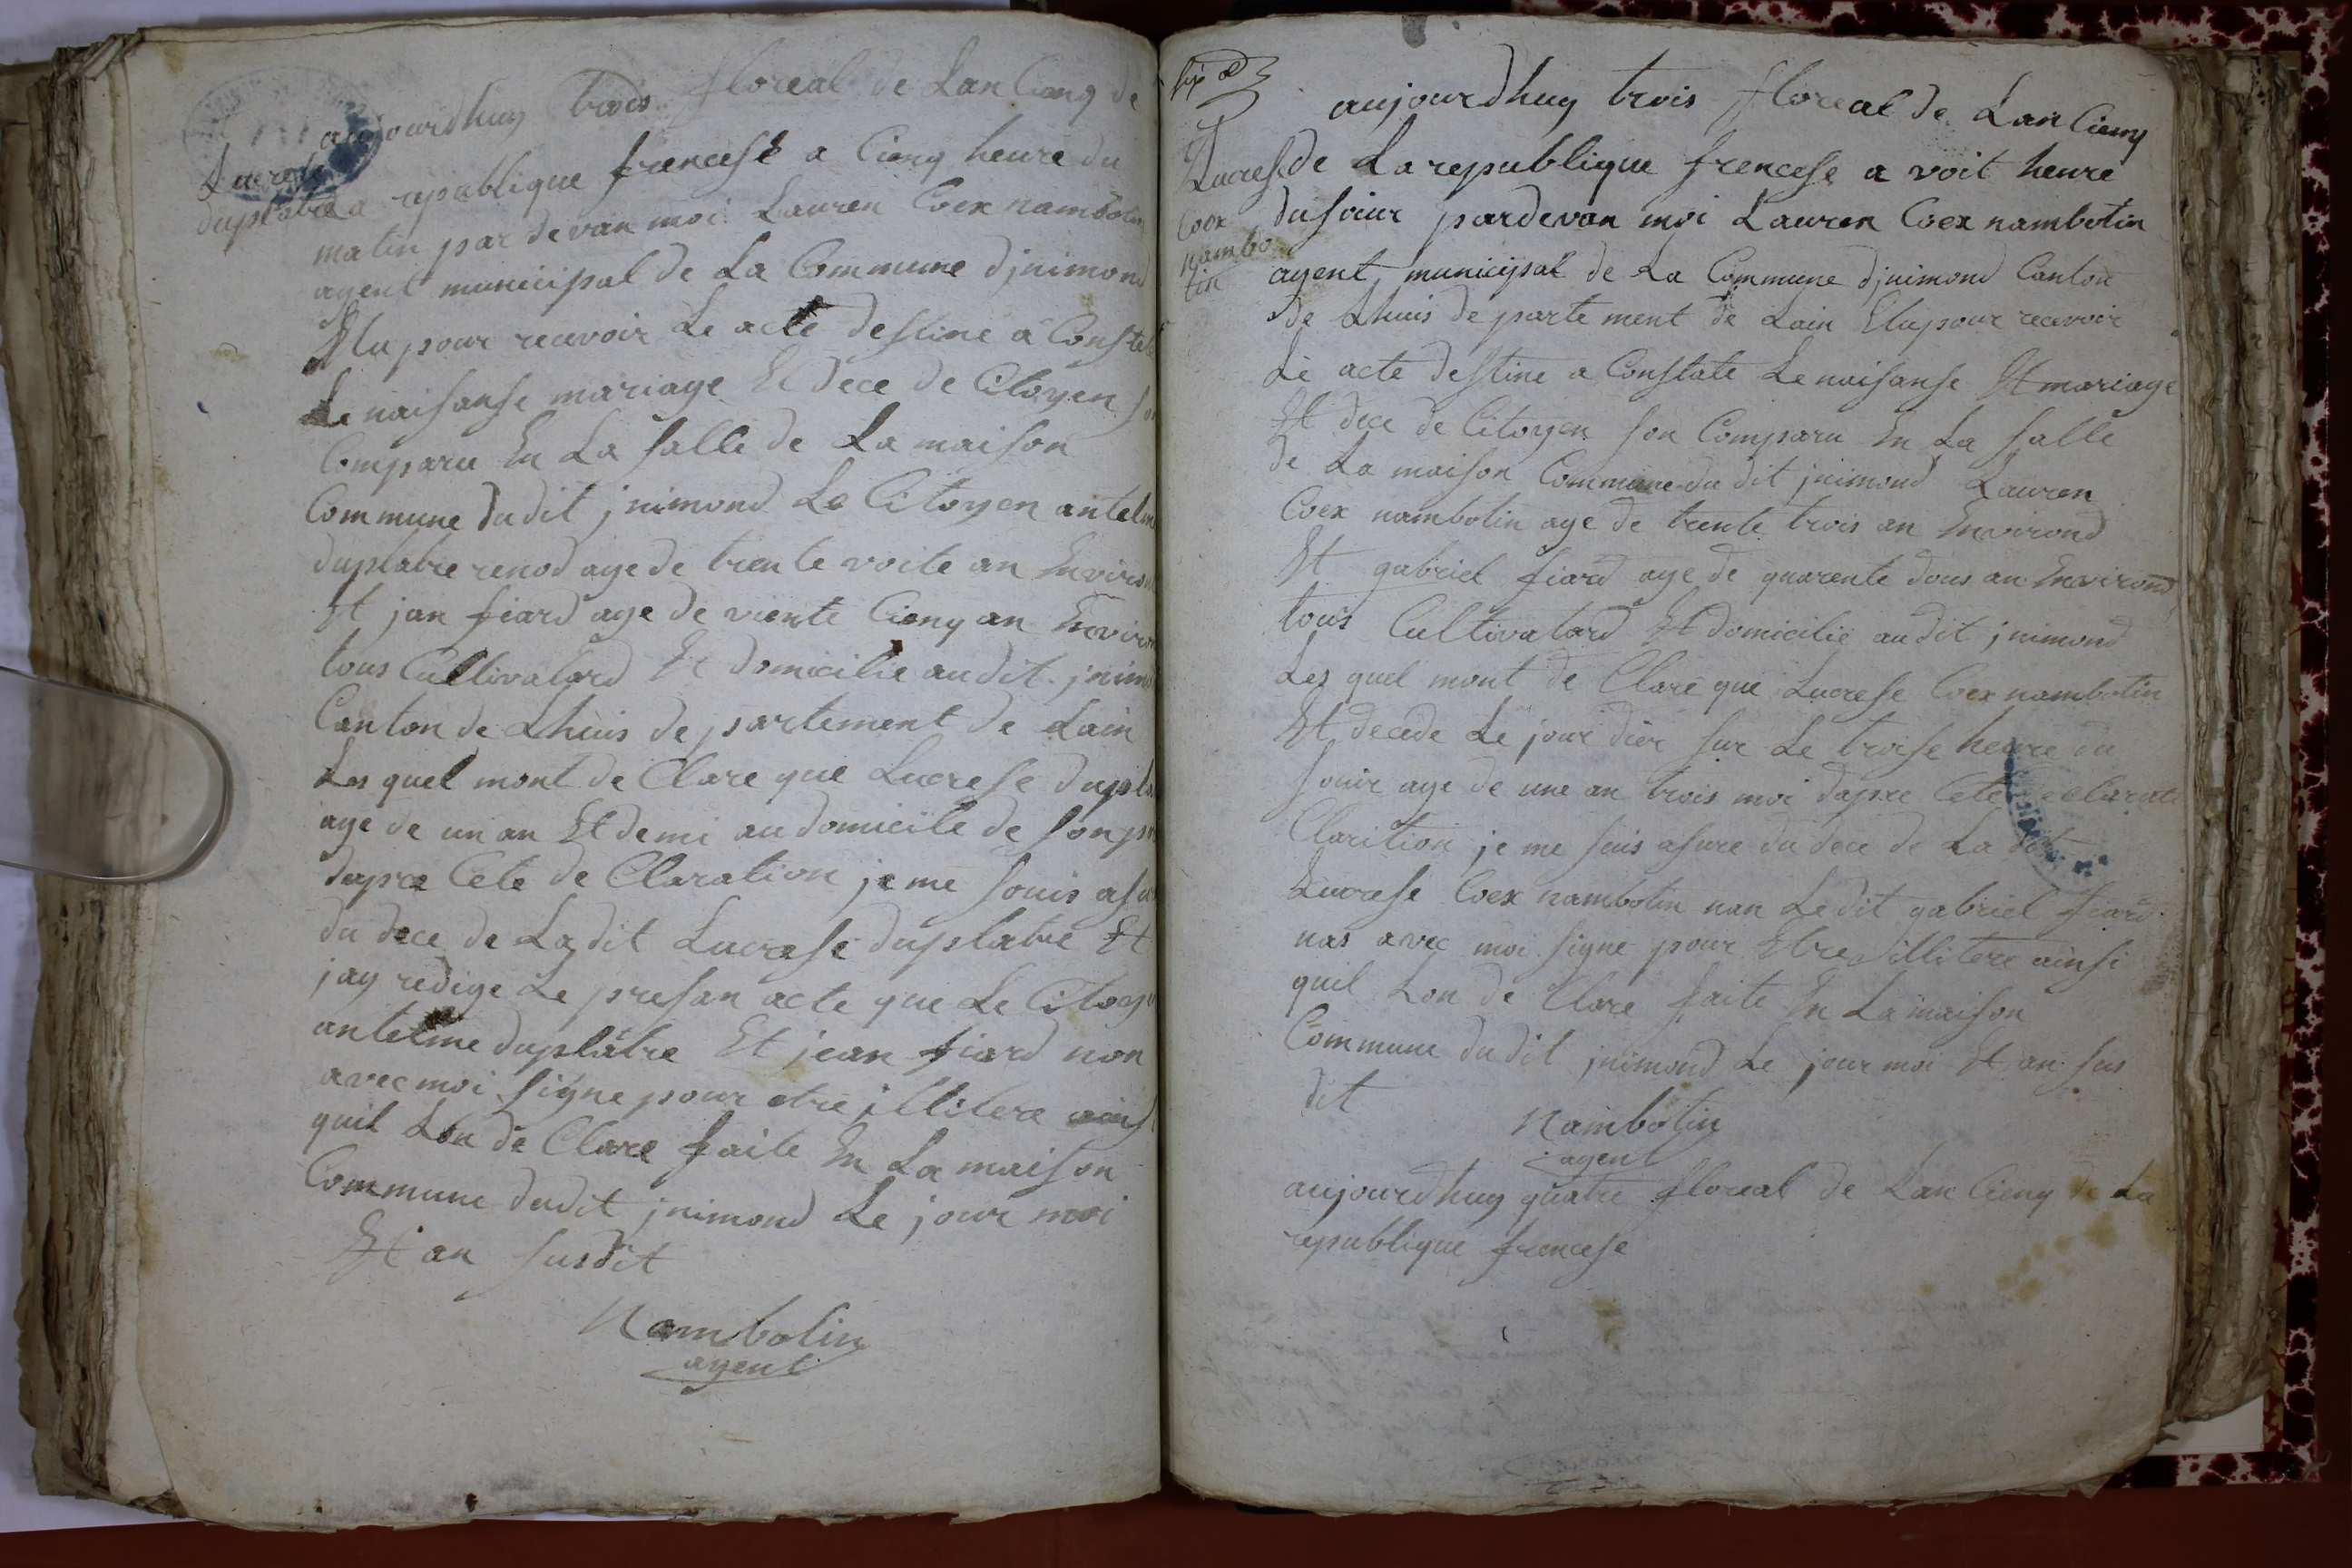 aujourdhuy trois floreal de Lan Cienq de
Lucrese
duplatre
La republique francese a Cienq heure du
matin par devan moi Lauren Coex nambotin
agent municipal de La Commune djnimond
Elu pour recevoir Le acte destine a Constate
Le naisanse mariage Et dece de Citoyen son
Comparu En La salle de La maison
Commune du dit jnimond Le Citoyen antelme
duplatre renod age de trente voite an Environ
Et jan fiard age de viente Cienq an Environ
tous Cultivatard Et domicilie au dit jnimond
Canton de Lhuis departement de Lain
Les quel mont de Clare que Lucrese dupla
age de un an Et demi au domicile de son p
dapre Cete de Claration je me souis asu
du dece de La dit Lucrese duplatre Et
jay redige Le presan acte que Le Citoye
antelme duplatre Et jean fiard non
avec moi signe pour etre jllitere ains
quil Lon de Clare faite En La maison
Commune dudit jnimond Le jour moi
Et an susdit
Nambotin
agent
aujourdhuy trois floreal de Lan Cienq
Lucrese
Coex
nambo
tin
de La republique francese a voit heure
du soieur pardevan moi Lauren Coex nambotin
agent municipal de La Commune djnimond Canton
de Lhuis departe ment de Lain Elu pour recevoir
Le acte destine a Constate Le naisanse Et mariage
Et dece de Citoyen son Comparu En La salle
de La maison Commune du dit jnimond Lauren
Coex nambotin age de trente trois an Environd
Et gabriel fiard age de quarente dous an Environd
tous Cultivatard Et domicilie au dit jnimond
Les quel mont de Clare que Lucrese Coex nambotin
Et decede Le jour dier sur Le troese heure du
souir age de une an trois moi dapre Cete declarat
Clarition je me suis asure du dece de La dit
Lucrese Coex nambotin nan Le dit gabriel fiard
nas avec moi signe pour Etre illitere ainsi
quil Lon de Clare faite En La maison
Commune du dit jnimond Le jour moi Et an sus
dit
Nambotin
agent
aujourdhuy quatre floreal de Lan Cienq de La
republique francese